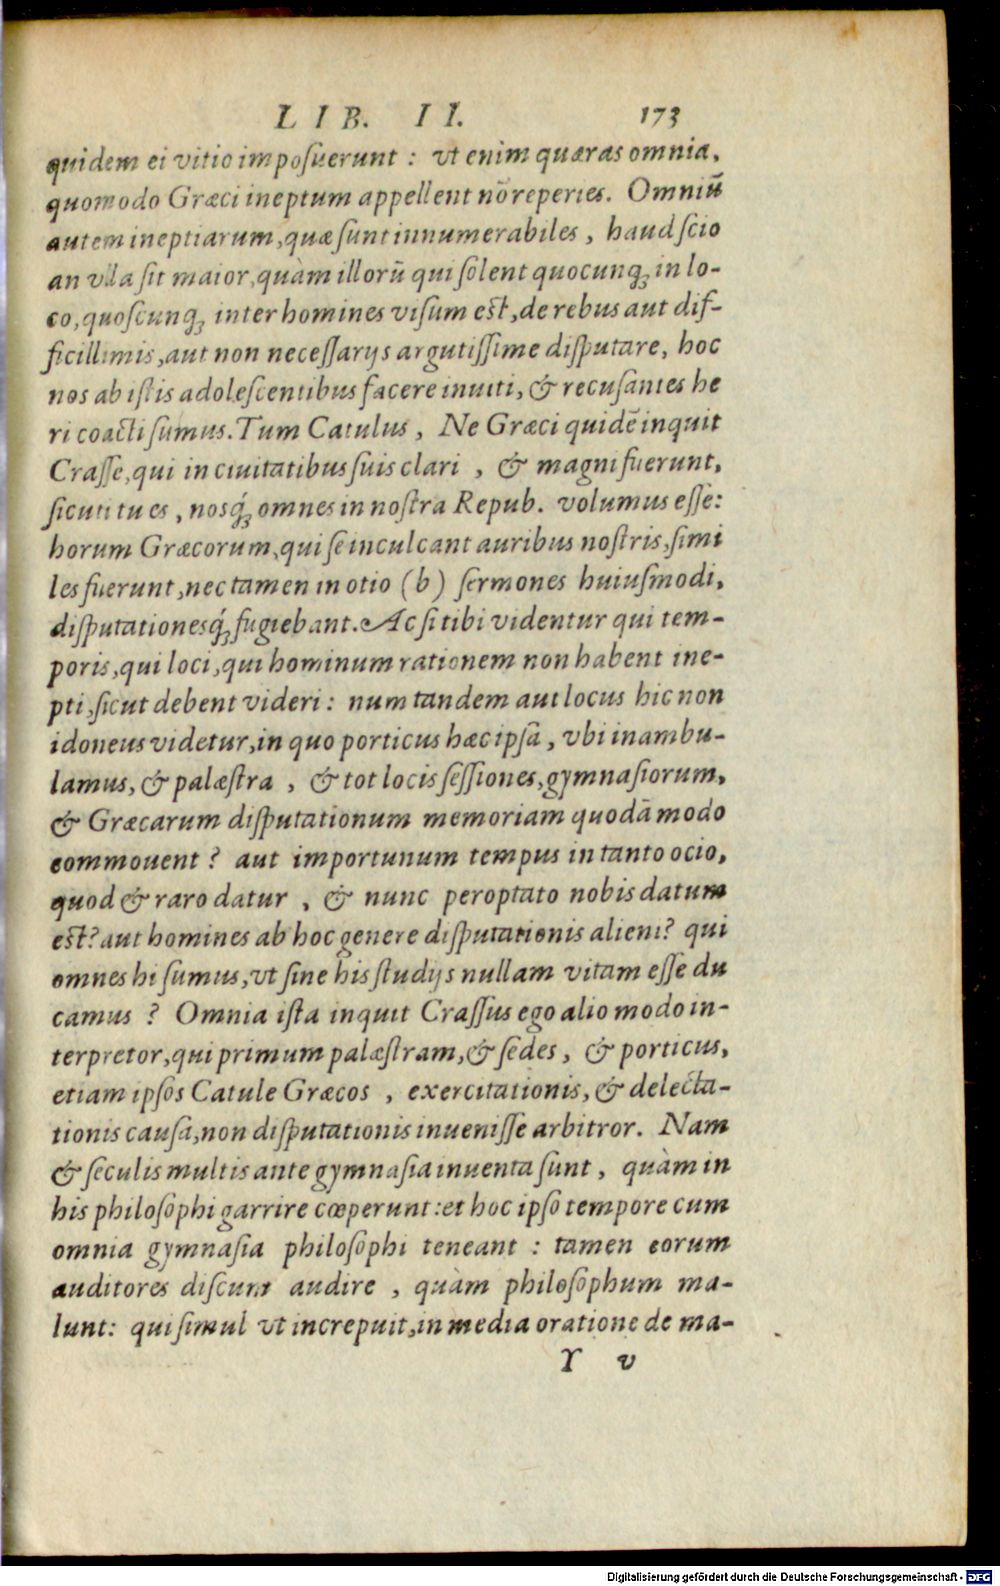 LIB. II. 173
quidem ei vitio imposuerunt : vt enim quæras omnia,
quomodo Græci ineptum appellent nō reperies. Omniū
autem ineptiarum, quæ sunt innumerabiles, haud scio
an vlla sit maior, quàm illorū qui solent quocunq; in lo-
co, quoscunq; inter homines visum est, de rebus aut dif-
ficillimis, aut non necessarijs argutissime disputare, hoc
nos ab istis adolescentibus facere inuiti, & recusantes he
ri coacti sumus. Tum Catulus, Ne Græci quidē inquit
Crasse, qui in ciuitatibus suis clari , & magni fuerunt,
sicuti tu es, nosq́; omnes in nostra Repub. volumus esse:
horum Græcorum, qui se inculcant auribus nostris, simi
les fuerunt, nec tamen in otio (b) sermones huiusmodi,
disputationesq́; fugiebant. Ac si tibi videntur qui tem-
poris, qui loci, qui hominum rationem non habent ine-
pti, sicut debent videri: num tandem aut locus hic non
idoneus videtur, in quo porticus hæc ipsa, vbi inambu-
lamus, & palæstra , & tot locis sessiones, gymnasiorum,
& Græcarum disputationum memoriam quodā modo
commouent? aut importunum tempus in tanto ocio,
quod & raro datur , & nunc peroptato nobis datum
est? aut homines ab hoc genere disputationis alieni? qui
omnes hi sumus, vt sine his studijs nullam vitam esse du
camus ? Omnia ista inquit Crassus ego alio modo in-
terpretor, qui primum palæstram, & sedes, & porticus,
etiam ipsos Catule Græcos , exercitationis, & delecta-
tionis causa, non disputationis inuenisse arbitror. Nam
& seculis multis ante gymnasia inuenta sunt, quàm in
his philosophi garrire cœperunt: et hoc ipso tempore cum
omnia gymnasia philosophi teneant : tamen eorum
auditores discum audire , quàm philosophum ma-
lunt: qui simul vt increpuit, in media oratione de ma-
Y v
Digitalisierung gefördert durch die Deutsche Forschungsgemeinschaft - DFG